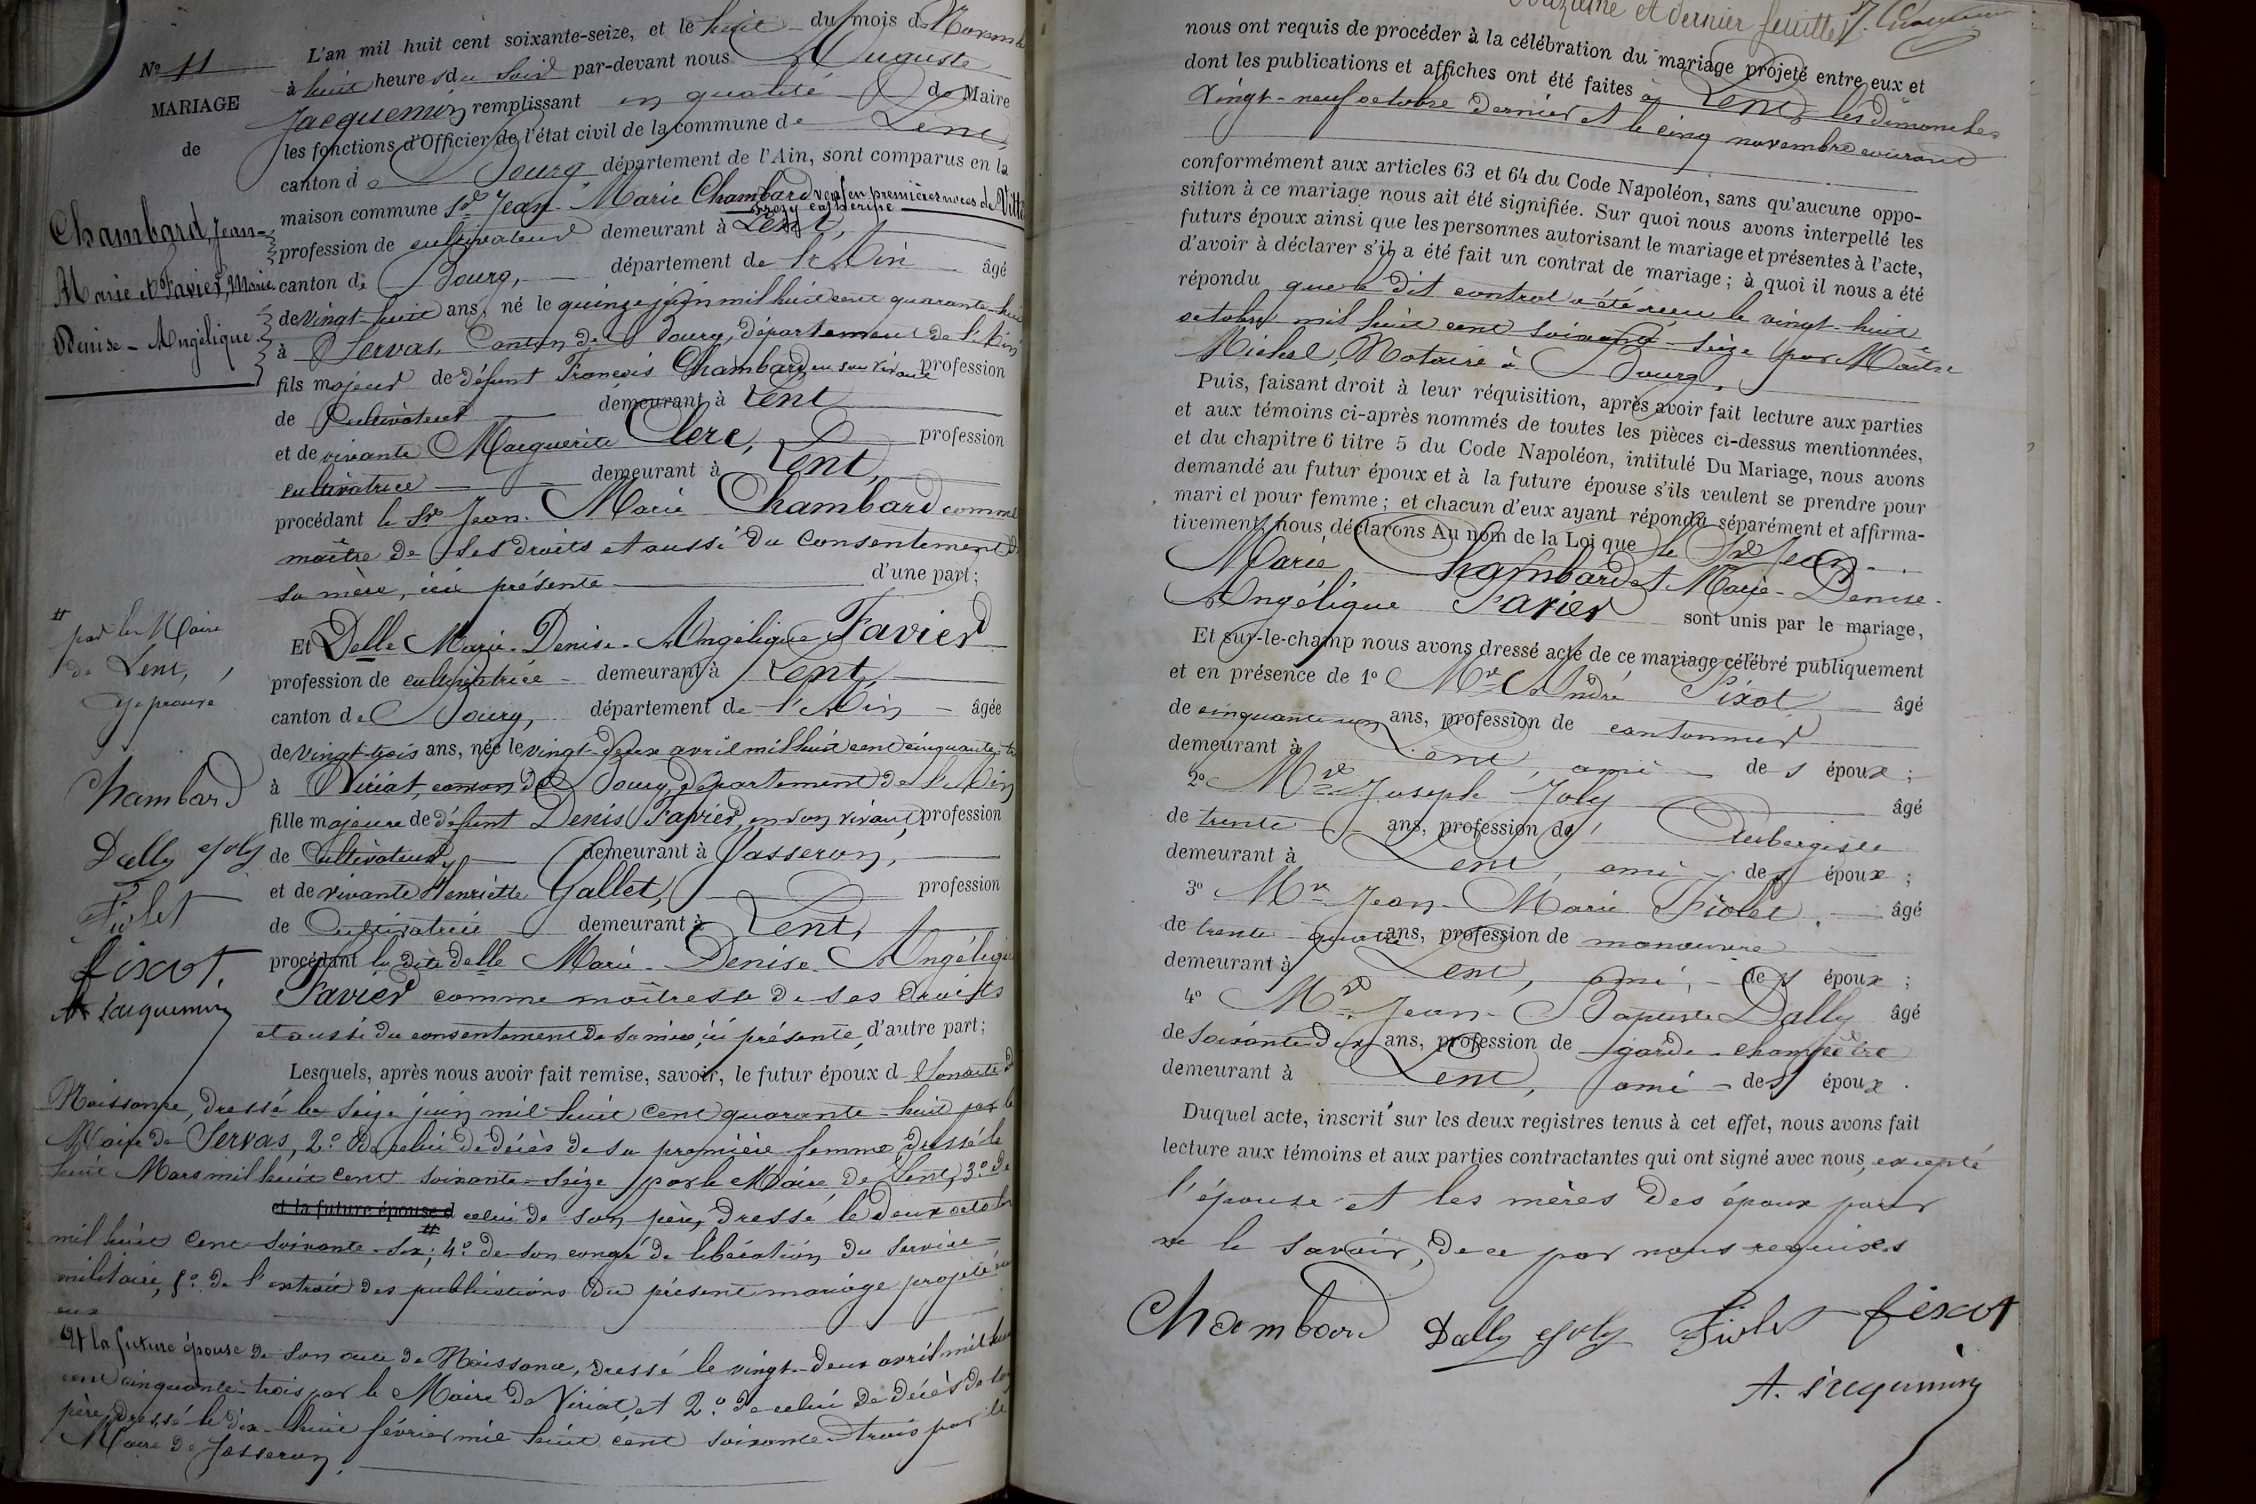 N° 11
MARIAGE
de
Chambard, Jean-
Marie et Favier, Marie
Denise - Angélique.
L'an mil huit cent soixante-seize, et le huit du mois de Novembre
à huit heures du soir par-devant nous Auguste
Jacquemin remplissant en qualité de Maire
les fonctions d'Officier de l'état civil de la commune de Lent,
canton de Bourg département de l'Ain, sont comparus en la
maison commune Sr Jean-Marie Chambard veuf en premières noces de
profession de cultivateur demeurant à Lent,
canton de Bourg, département de l'Ain âgé
de vingt-huit ans, né le quinze juin mil huit cent quarante-huit
à Servas, Canton de Bourg, département de l'Ain
fils majeur de défunt François Chambard, en son vivant profession
de Cultivateur demeurant à Lent
et de vivante Marguerite Clerc, profession
cultivatrice demeurant à Lent,
procédant le Sr Jean-Marie Chambard comme
maître de ses droits et aussi du consentement de
sa mère, ici présente d'une part;
Et Delle Marie-Denise-Angélique Favier
profession de cultivatrice demeurant à Lent,
canton de Bourg, département de l'Ain âgée
de vingt-trois ans, née le vingt-deux avril mil huit cent cinquante-
à Viriat, canton de Bourg, département de l'Ain
fille majeure de défunt Denis Favier, en son vivant, profession
de Cultivateur demeurant à Jasseron,
et de vivante Henriette Gallet, profession
de Cultivatrice demeurant à Lent,
procédant la dite Delle Marie-Denise-Angélique
Favier comme maîtresse de ses droits
et aussi du consentement de sa mère, ici présente, d'autre part;
Lesquels, après nous avoir fait remise, savoir, le futur époux de son acte de
Naissance, dressé le seize juin mil huit cent quarante-huit par le
Maire de Servas, 2° de celui de décès de sa première femme dressé le
huit Mars mil huit cent soixante-seize par le Maire de Lent, 3° de
et la future épouse d celui de son père, dressé le deux octobre
mil huit cent soixante-six; # 4° de son congé de libération du service
militaire, 5° de l'extrait des publications du présent mariage projeté
eux
Et la future épouse de son acte de Naissance, dressé le vingt-deux avril mil huit
cent cinquante-trois par le Maire de Viriat, et 2° de celui de décès de son
père, dressé le dix-huit février mil huit cent soixante-trois par le
Maire de Jasseron.
# par le Maire
de Lent,
approuvé
Chambard
Dally Joly
Fiolet
fixot.
A. Jacquemin
Douzième et dernier feuillet
nous ont requis de procéder à la célébration du mariage projeté entre eux et
dont les publications et affiches ont été faites à Lent, les dimanches
vingt-neuf octobre dernier et le cinq novembre courant
conformément aux articles 63 et 64 du Code Napoléon, sans qu'aucune oppo-
sition à ce mariage nous ait été signifiée. Sur quoi nous avons interpellé les
futurs époux ainsi que les personnes autorisant le mariage et présentes à l'acte,
d'avoir à déclarer s'il a été fait un contrat de mariage; à quoi il nous a été
répondu que le dit contrat a été reçu le vingt-huit
octobre mil huit cent soixante-seize par Maître
Michel, Notaire à Bourg.
Puis, faisant droit à leur réquisition, après avoir fait lecture aux parties
et aux témoins ci-après nommés de toutes les pièces ci-dessus mentionnées,
et du chapitre 6 titre 5 du Code Napoléon, intitulé Du Mariage, nous avons
demandé au futur époux et à la future épouse s'ils veulent se prendre pour
mari et pour femme; et chacun d'eux ayant répondu séparément et affirma-
tivement, nous déclarons Au nom de la Loi que le Sr Jean-
Marie Chambard et Marie-Denise-
Angélique Favier sont unis par le mariage,
Et sur-le-champ nous avons dressé acte de ce mariage célébré publiquement
et en présence de 1° Mr André Fixot âgé
de cinquante-un ans, profession de cantonnier
demeurant à Lent, ami des époux;
2° Mr Joseph Joly âgé
de trente ans, profession d' Aubergiste
demeurant à Lent, ami des époux;
3° Mr Jean-Marie Fiolet. âgé
de trente-quatre ans, profession de manœuvre
demeurant à Lent, ami, des époux;
4° Mr Jean-Baptiste Dally âgé
de soixante-deux ans, profession de garde-champêtre
demeurant à Lent, ami des époux.
Duquel acte, inscrit sur les deux registres tenus à cet effet, nous avons fait
lecture aux témoins et aux parties contractantes qui ont signé avec nous, excepté
l'épouse et les mères des époux pour
ne le savoir, de ce par nous requises
Chambard Dally Joly Fiolet fixot
A. Jacquemin